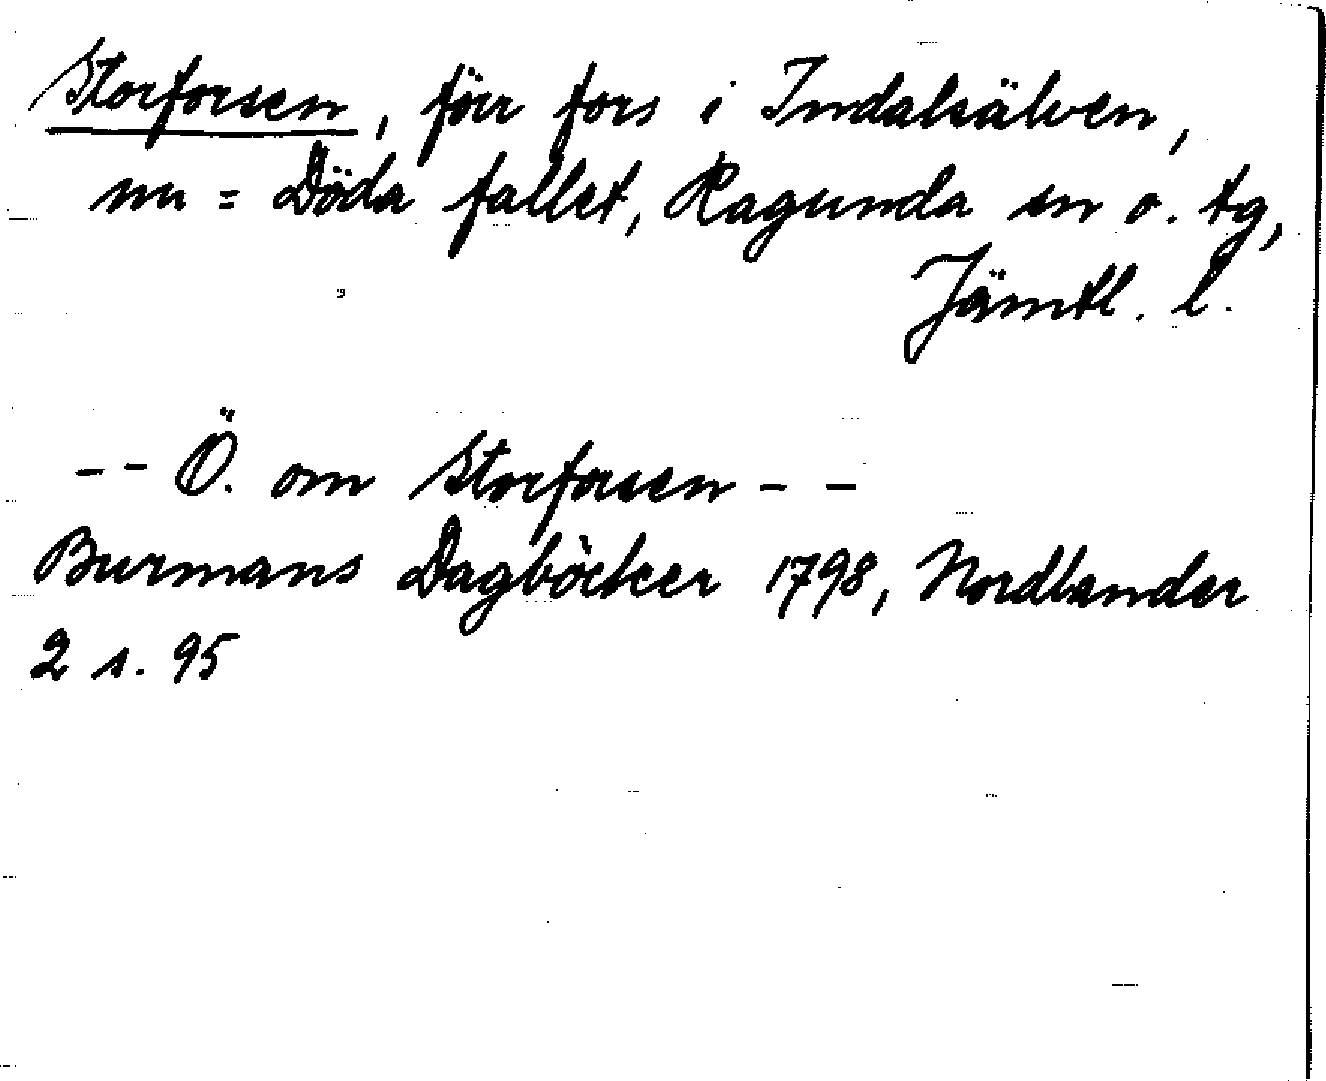 Storforsen, förr fors i Indalsälven,
nu = Döda fallet, Ragunda sn o. tg,
Jämtl. l.
-- Ö. om Storforsen - -
Burmans Dagböcker 1798, Nordlander
2 s. 95